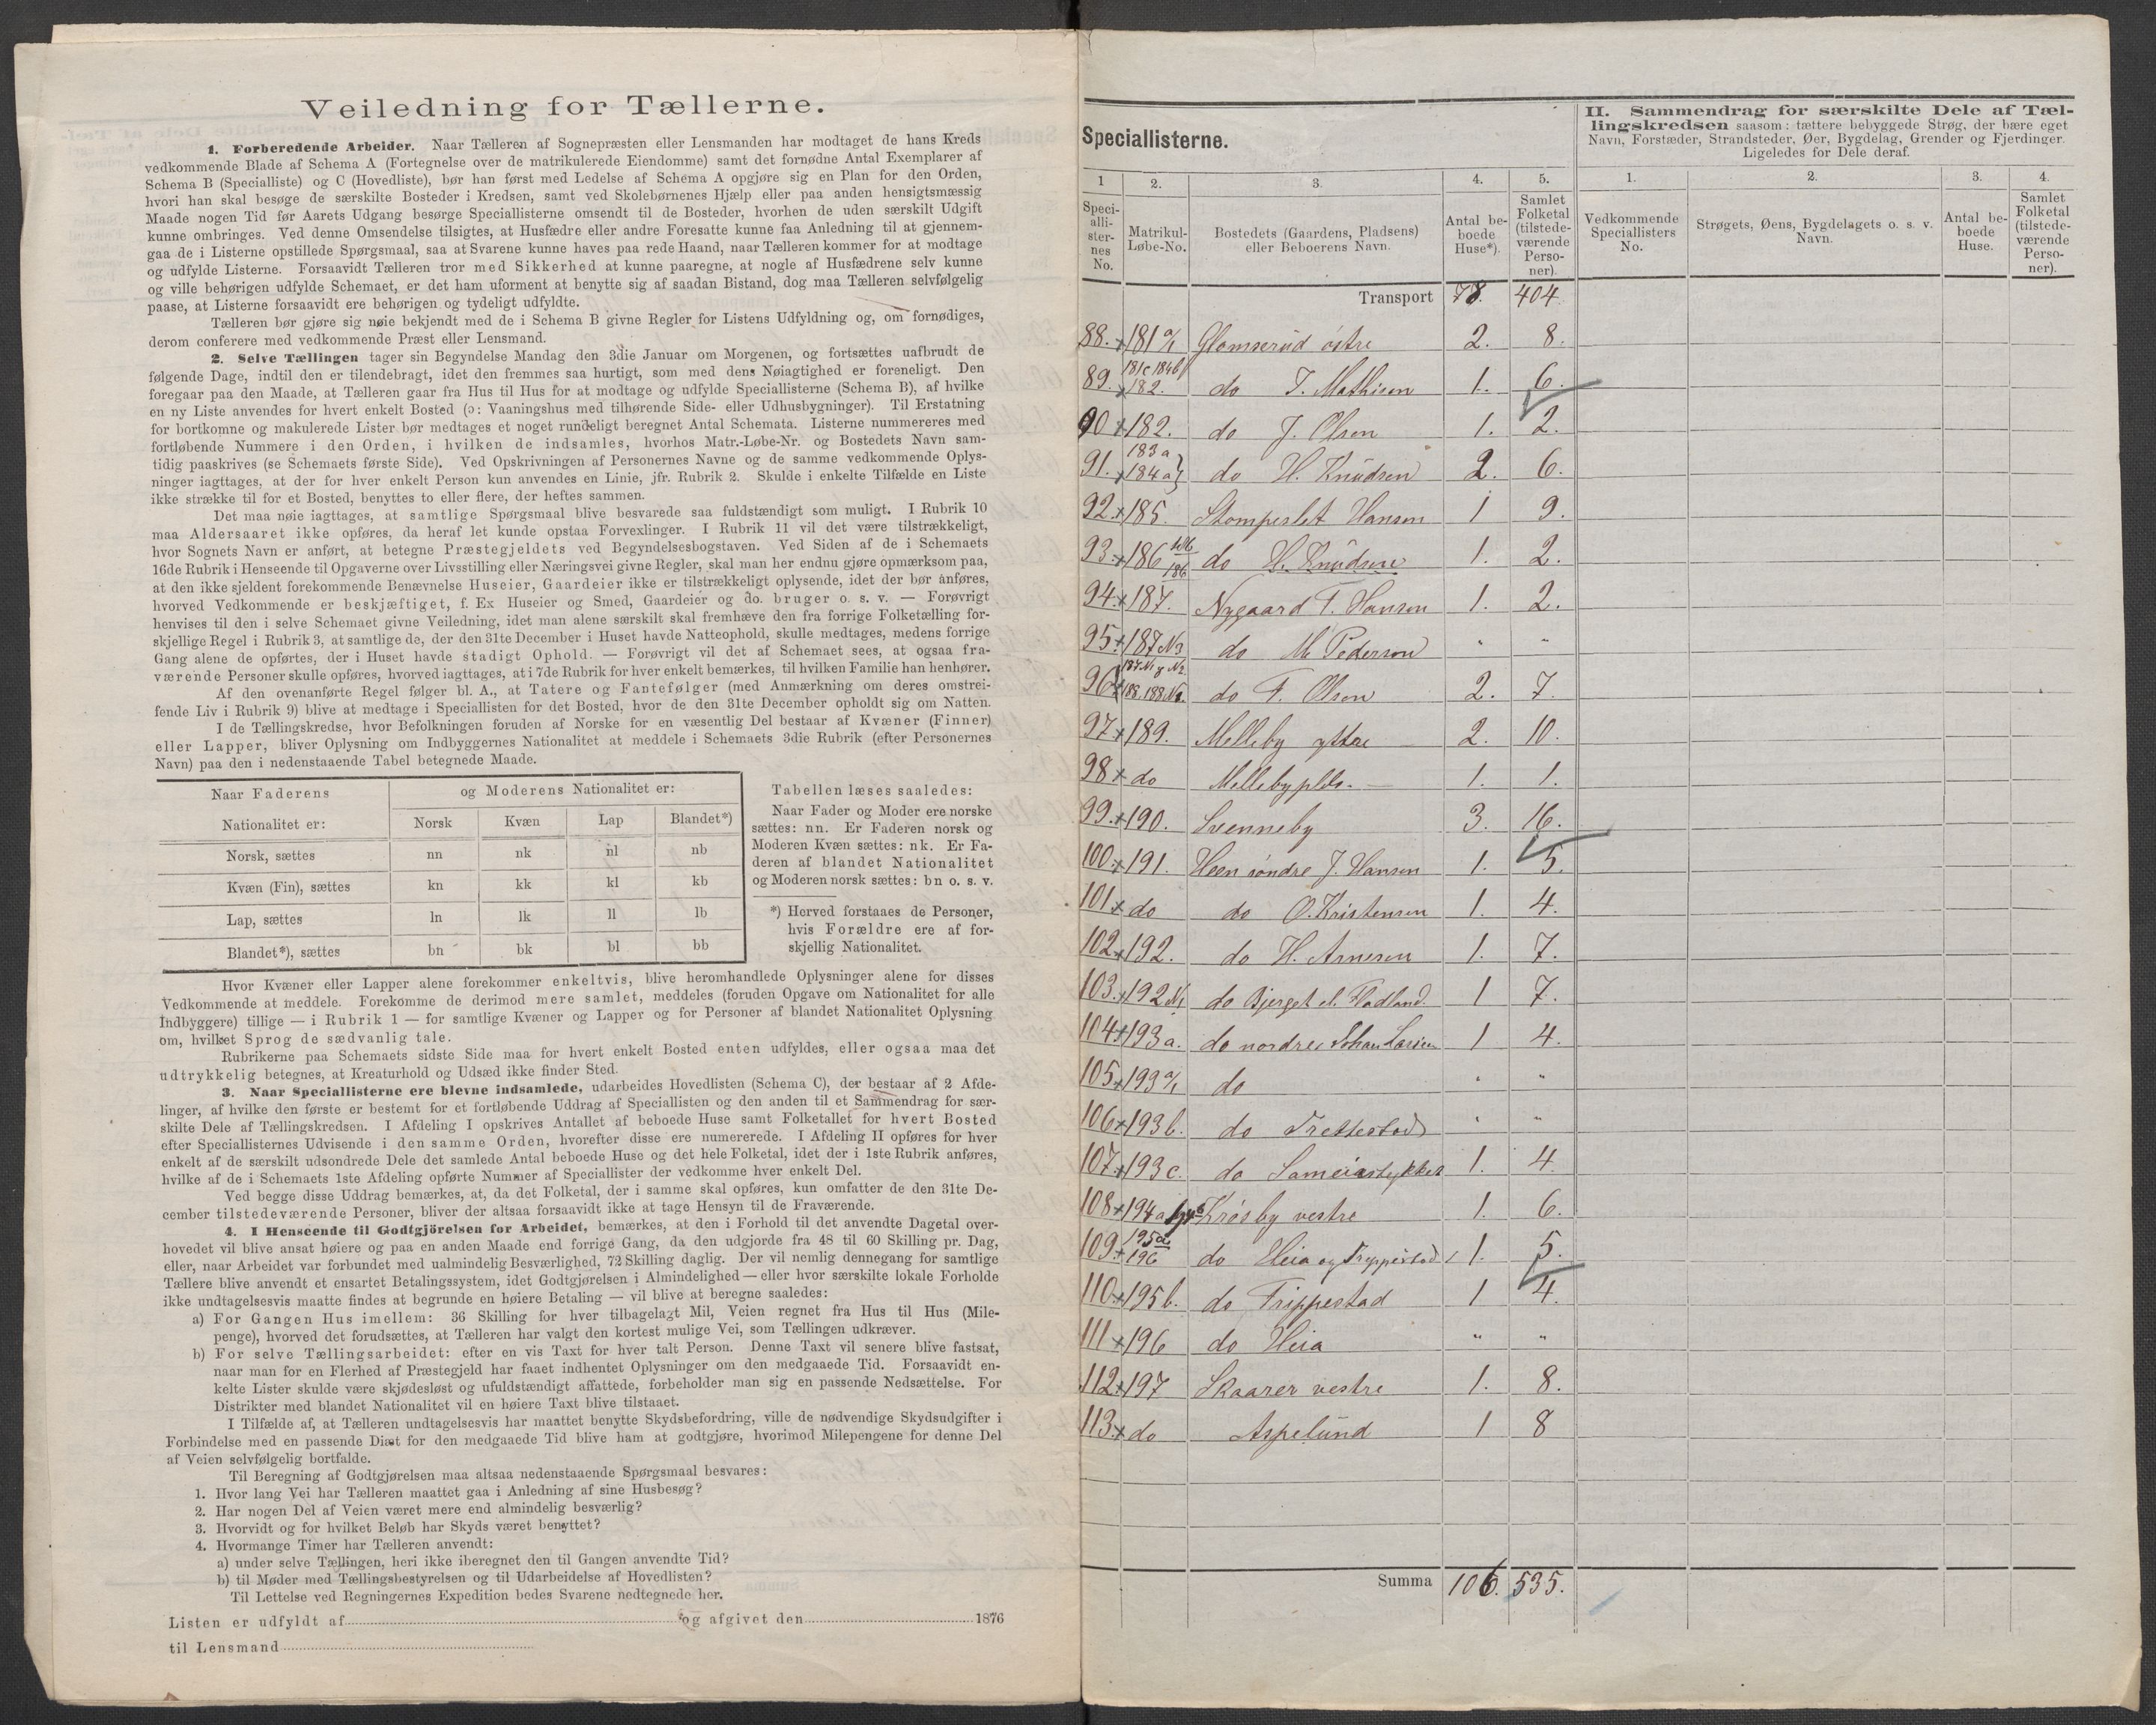 Veiledning for Tællerne.
1. Forberedende Arbeider. Naar Tælleren af Sognepræsten eller Lensmanden har modtaget de hans Kreds
vedkommende Blade af Schema A (Fortegnelse over de matrikulerede Eiendomme) samt det fornødne Antal Exemplarer af
Schema B (Specialliste) og C (Hovedliste), bør han først med Ledelse af Schema A opgjøre sig en Plan for den Orden,
hvori han skal besøge de særskilte Bosteder i Kredsen, samt ved Skolebørnenes Hjælp eller paa anden hensigtsmæssig
Maade nogen Tid før Aarets Udgang besørge Speciallisterne omsendt til de Bosteder, hvorhen de uden særskilt Udgift
kunne ombringes. Ved denne Omsendelse tilsigtes, at Husfædre eller andre Foresatte kunne faa Anledning til at gjennem-
gaa de i Listerne opstillede Spørgsmaal, saa at Svarene kunne haves paa rede Haand, naar Tælleren kommer for at modtage
og udfylde Listerne. Forsaavidt Tælleren tror med Sikkerhed at kunne paaregne, at nogle af Husfædrene selv kunne
og ville behørigen udfylde Schemaet, er det ham uforment at benytte sig af saadan Bistand, dog maa Tælleren selvfølgelig
paase, at Listerne forsaavidt ere behørigen og tydeligt udfyldte.
Tælleren bør gjøre sig nøie bekjendt med de i Schema B givne Regler for Listens Udfyldning og, om fornødiges,
derom conferere med vedkommende Præst eller Lensmand.
2. Selve Tællingen tager sin Begyndelse Mandag den 3die Januar om Morgenen, og fortsættes uafbrudt de
følgende Dage, indtil den er tilendebragt, idet den fremmes saa hurtigt, som med dens Nøiagtighed er foreneligt. Den
foregaar paa den Maade, at Tælleren gaar fra Hus til Hus for at modtage og udfylde Speciallisterne (Schema B), af hvilke
en ny Liste anvendes for hvert enkelt Bosted (ɔ: Vaaningshus med tilhørende Side- eller Udhusbygninger). Til Erstatning
for bortkomne og makulerede Lister bør medtages et noget rundeligt beregnet Antal Schemata. Listerne nummereres med
fortløbende Nummere i den Orden, i hvilken de indsamles, hvorhos Matr.-Løbe-Nr. og Bostedets Navn sam-
tidig paaskrives (se Schemaets første Side). Ved Opskrivningen af Personernes Navne og de samme vedkommende Oplys-
ninger iagttages, at der for hver enkelt Person kun anvendes en Linie, jfr. Rubrik 2. Skulde i enkelte Tilfælde en Liste
ikke strække til for et Bosted, benyttes to eller flere, der heftes sammen.
Det maa nøie iagttages, at samtlige Spørgsmaal blive besvarede saa fuldstændigt som muligt. I Rubrik 10
maa Aldersaaret ikke opføres, da heraf let kunde opstaa Forvexlinger. I Rubrik 11 vil det være tilstrækkeligt,
hvor Sognets Navn er anført, at betegne Præstegjeldets ved Begyndelsesbogstaven. Ved Siden af de i Schemaets
16de Rubrik i Henseende til Opgaverne over Livsstilling eller Næringsvei givne Regler, skal man her endnu gjøre opmærksom paa,
at den ikke sjeldent forekommende Benævnelse Huseier, Gaardeier ikke er tilstrækkeligt oplysende, idet der bør anføres,
hvorved Vedkommende er beskjæftiget, f. Ex Huseier og Smed, Gaardeier og do. bruger o. s. v. — Forøvrigt
henvises til den i selve Schemaet givne Veiledning, idet man alene særskilt skal fremhæve den fra forrige Folketælling for-
skjellige Regel i Rubrik 3, at samtlige de, der den 31te December i Huset havde Natteophold, skulle medtages, medens forrige
Gang alene de opførtes, der i Huset havde stadigt Ophold. — Forøvrigt vil det af Schemaet sees, at ogsaa fra-
værende Personer skulle opføres, hvorved iagttages, at i 7de Rubrik for hver enkelt bemærkes, til hvilken Familie han henhører.
Af den ovenanførte Regel følger bl. A., at Tatere og Fantefølger (med Anmærkning om deres omstrei-
fende Liv i Rubrik 9) blive at medtage i Speciallisten for det Bosted, hvor de den 31te December opholdt sig om Natten.
I de Tællingskredse, hvor Befolkningen foruden af Norske for en væsentlig Del bestaar af Kvæner (Finner)
eller Lapper, bliver Oplysning om Indbyggernes Nationalitet at meddele i Schemaets 3die Rubrik (efter Personernes
Navn) paa den i nedenstaaende Tabel betegnede Maade.
Naar Faderens og Moderens Nationalitet er:
Nationalitet er: Norsk Kvæn Lap Blandet*)
Norsk, sættes nn nk nl nb
Kvæn (Fin), sættes kn kk kl kb
Lap, sættes ln lk ll lb
Blandet*), sættes bn bk bl bb
Tabellen læses saaledes:
Naar Fader og Moder ere norske
sættes: nn. Er Faderen norsk og
Moderen Kvæn sættes: nk. Er Fa-
deren af blandet Nationalitet
og Moderen norsk sættes: bn o. s. v.
*) Herved forstaaes de Personer,
hvis Forældre ere af for-
skjellig Nationalitet.
Hvor Kvæner eller Lapper alene forekommer enkeltvis, blive heromhandlede Oplysninger alene for disses
Vedkommende at meddele. Forekomme de derimod mere samlet, meddeles (foruden Opgave om Nationalitet for alle
Indbyggere) tillige — i Rubrik 1 — for samtlige Kvæner og Lapper og for Personer af blandet Nationalitet Oplysning
om, hvilket Sprog de sædvanlig tale.
Rubrikerne paa Schemaets sidste Side maa for hvert enkelt Bosted enten udfyldes, eller ogsaa maa det
udtrykkelig betegnes, at Kreaturhold og Udsæd ikke finder Sted.
3. Naar Speciallisterne ere blevne indsamlede, udarbeides Hovedlisten (Schema C), der bestaar af 2 Afde-
linger, af hvilke den første er bestemt for et fortløbende Uddrag af Speciallisten og den anden til et Sammendrag for sær-
skilte Dele af Tællingskredsen. I Afdeling I opskrives Antallet af beboede Huse samt Folketallet for hvert Bosted
efter Speciallisternes Udvisende i den samme Orden, hvorefter disse ere numererede. I Afdeling II opføres for hver
enkelt af de særskilt udsondrede Dele det samlede Antal beboede Huse og det hele Folketal, idet der i 1ste Rubrik anføres,
hvilke af de i Schemaets 1ste Afdeling opførte Nummer af Speciallister der vedkomme hver enkelt Del.
Ved begge disse Uddrag bemærkes, at, da det Folketal, der i samme skal opføres, kun omfatter de den 31te De-
cember tilstedeværende Personer, bliver der altsaa forsaavidt ikke at tage Hensyn til de Fraværende.
4. I Henseende til Godtgjörelsen for Arbeidet, bemærkes, at den i Forhold til det anvendte Dagetal over-
hovedet vil blive ansat høiere og paa en anden Maade end forrige Gang, da den udgjorde fra 48 til 60 Skilling pr. Dag,
eller, naar Arbeidet var forbundet med ualmindelig Besværlighed, 72 Skilling daglig. Der vil nemlig dennegang for samtlige
Tællere blive anvendt et ensartet Betalingssystem, idet Godtgjørelsen i Almindelighed — eller hvor særskilte lokale Forholde
ikke undtagelsesvis maatte findes at begrunde en høiere Betaling — vil blive at beregne saaledes:
a) For Gangen Hus imellem: 36 Skilling for hver tilbagelagt Mil, Veien regnet fra Hus til Hus (Mile-
penge), hvorved det forudsættes, at Tælleren har valgt den kortest mulige Vei, som Tællingen udkræver.
b) For selve Tællingsarbeidet: efter en vis Taxt for hver talt Person. Denne Taxt vil senere blive fastsat,
naar man for en Flerhed af Præstegjeld har faaet indhentet Oplysninger om den medgaaede Tid. Forsaavidt en-
kelte Lister skulde være skjødesløst og ufuldstændigt affattede, forbeholder man sig en passende Nedsættelse. For
Distrikter med blandet Nationalitet vil en høiere Taxt blive tilstaaet.
I Tilfælde af, at Tælleren undtagelsesvis har maattet benytte Skydsbefordring, ville de nødvendige Skydsudgifter i
Forbindelse med en passende Diæt for den medgaaede Tid blive ham at godtgjøre, hvorimod Milepengene for denne Del
af Veien selvfølgelig bortfalde.
Til Beregning af Godtgjørelsen maa altsaa nedenstaaende Spørgsmaal besvares:
1. Hvor lang Vei har Tælleren maattet gaa i Anledning af sine Husbesøg?
2. Har nogen Del af Veien været mere end almindelig besværlig?
3. Hvorvidt og for hvilket Beløb har Skyds været benyttet?
4. Hvormange Timer har Tælleren anvendt:
a) under selve Tællingen, heri ikke iberegnet den til Gangen anvendte Tid?
b) til Møder med Tællingsbestyrelsen og til Udarbeidelse af Hovedlisten?
Til Lettelse ved Regningernes Expedition bedes Svarene nedtegnede her.
Listen er udfyldt af og afgivet den 1876
til Lensmand
Speciallisterne.
1 2. 3. 4. 5.
Speci-alli-ster-nes No. Matrikul-Løbe-No. Bostedets (Gaardens, Pladsens) eller Beboerens Navn. Antal be-boede Huse*). Samlet Folketal (tilstede-værende Perso-ner).
II. Sammendrag for særskilte Dele af Tæl-
lingskredsen saasom: tættere bebyggede Strøg, der bære eget
Navn, Forstæder, Strandsteder, Øer, Bygdelag, Grender og Fjerdinger.
Ligeledes for Dele deraf.
1. 2. 3. 4.
Vedkommende Speciallisters No. Strøgets, Øens, Bygdelagets o. s. v. Navn. Antal be-boede Huse. Samlet Folketal (tilstede-værende Perso-ner).
Transport 78. 404.
88. 181 a/1 Glomserud östre 2. 8.
89. 181c 184b 182. do J. Mathisen 1. 6.
90 182. do J. Olsen 1. 2.
91. 183a 184a do H. Knudsen 2. 6.
92. 185. Stomperlet Hansen 1 9.
93 186 do H. Knudsen 1. 2.
94. 187. Nygaard F. Hansen 1. 2.
95. 187 N3 do M. Pederson " "
96 187 N1 g N2 188. do F. Olsen 2. 7.
97 189. Melleby yttre 2. 10.
98 do Mellebyplds. 1. 1.
99. 190. Svenneby 3. 16.
100. 191. Heen söndre J. Hansen 1. 5.
101 do do O. Kristensen 1. 4.
102. 192. do H. Arnesen 1. 7.
103. 192 N1 do Bjerget el. Fladland. 1 7.
104 193a. do nordre Johan Larsen 1 4.
105 193 a/1 do " "
106 193b. do Trettestad " "
107 193c. do Sameiestykket 1. 4.
108 194a Krosby vestre 1. 6.
109 195a 196 do Heia og Tryppestad 1. 5.
110 195b. do Trippestad 1 4.
111 196 do Heia " "
112 197 Skaarer vestre 1. 8.
113 do Aspelund 1 8
Summa 106. 535.